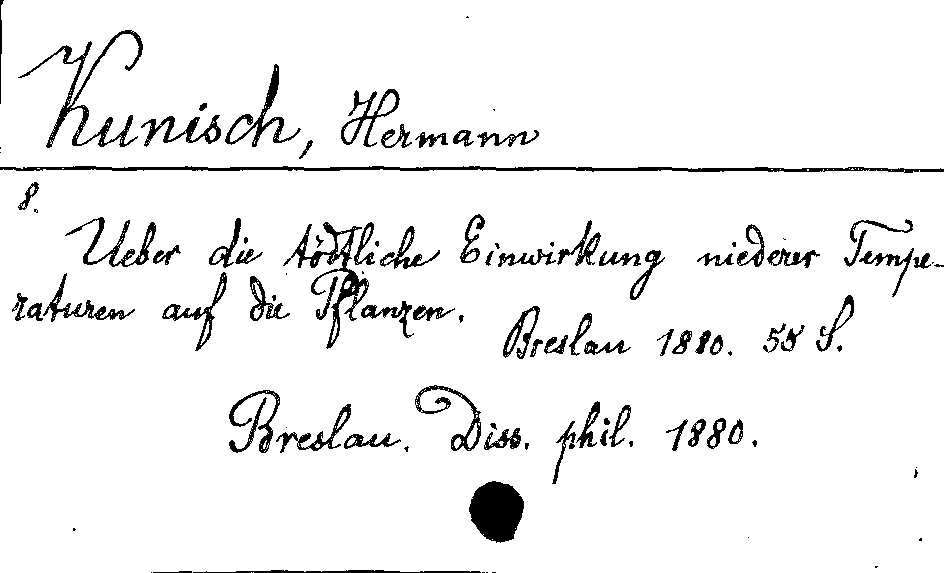 Kunisch, Hermann
8.
Ueber die tödtliche Einwirkung niederer Tempe-
raturen auf die Pflanzen.
Breslau 1880. 55 S.
Breslau. Diss. phil. 1880.